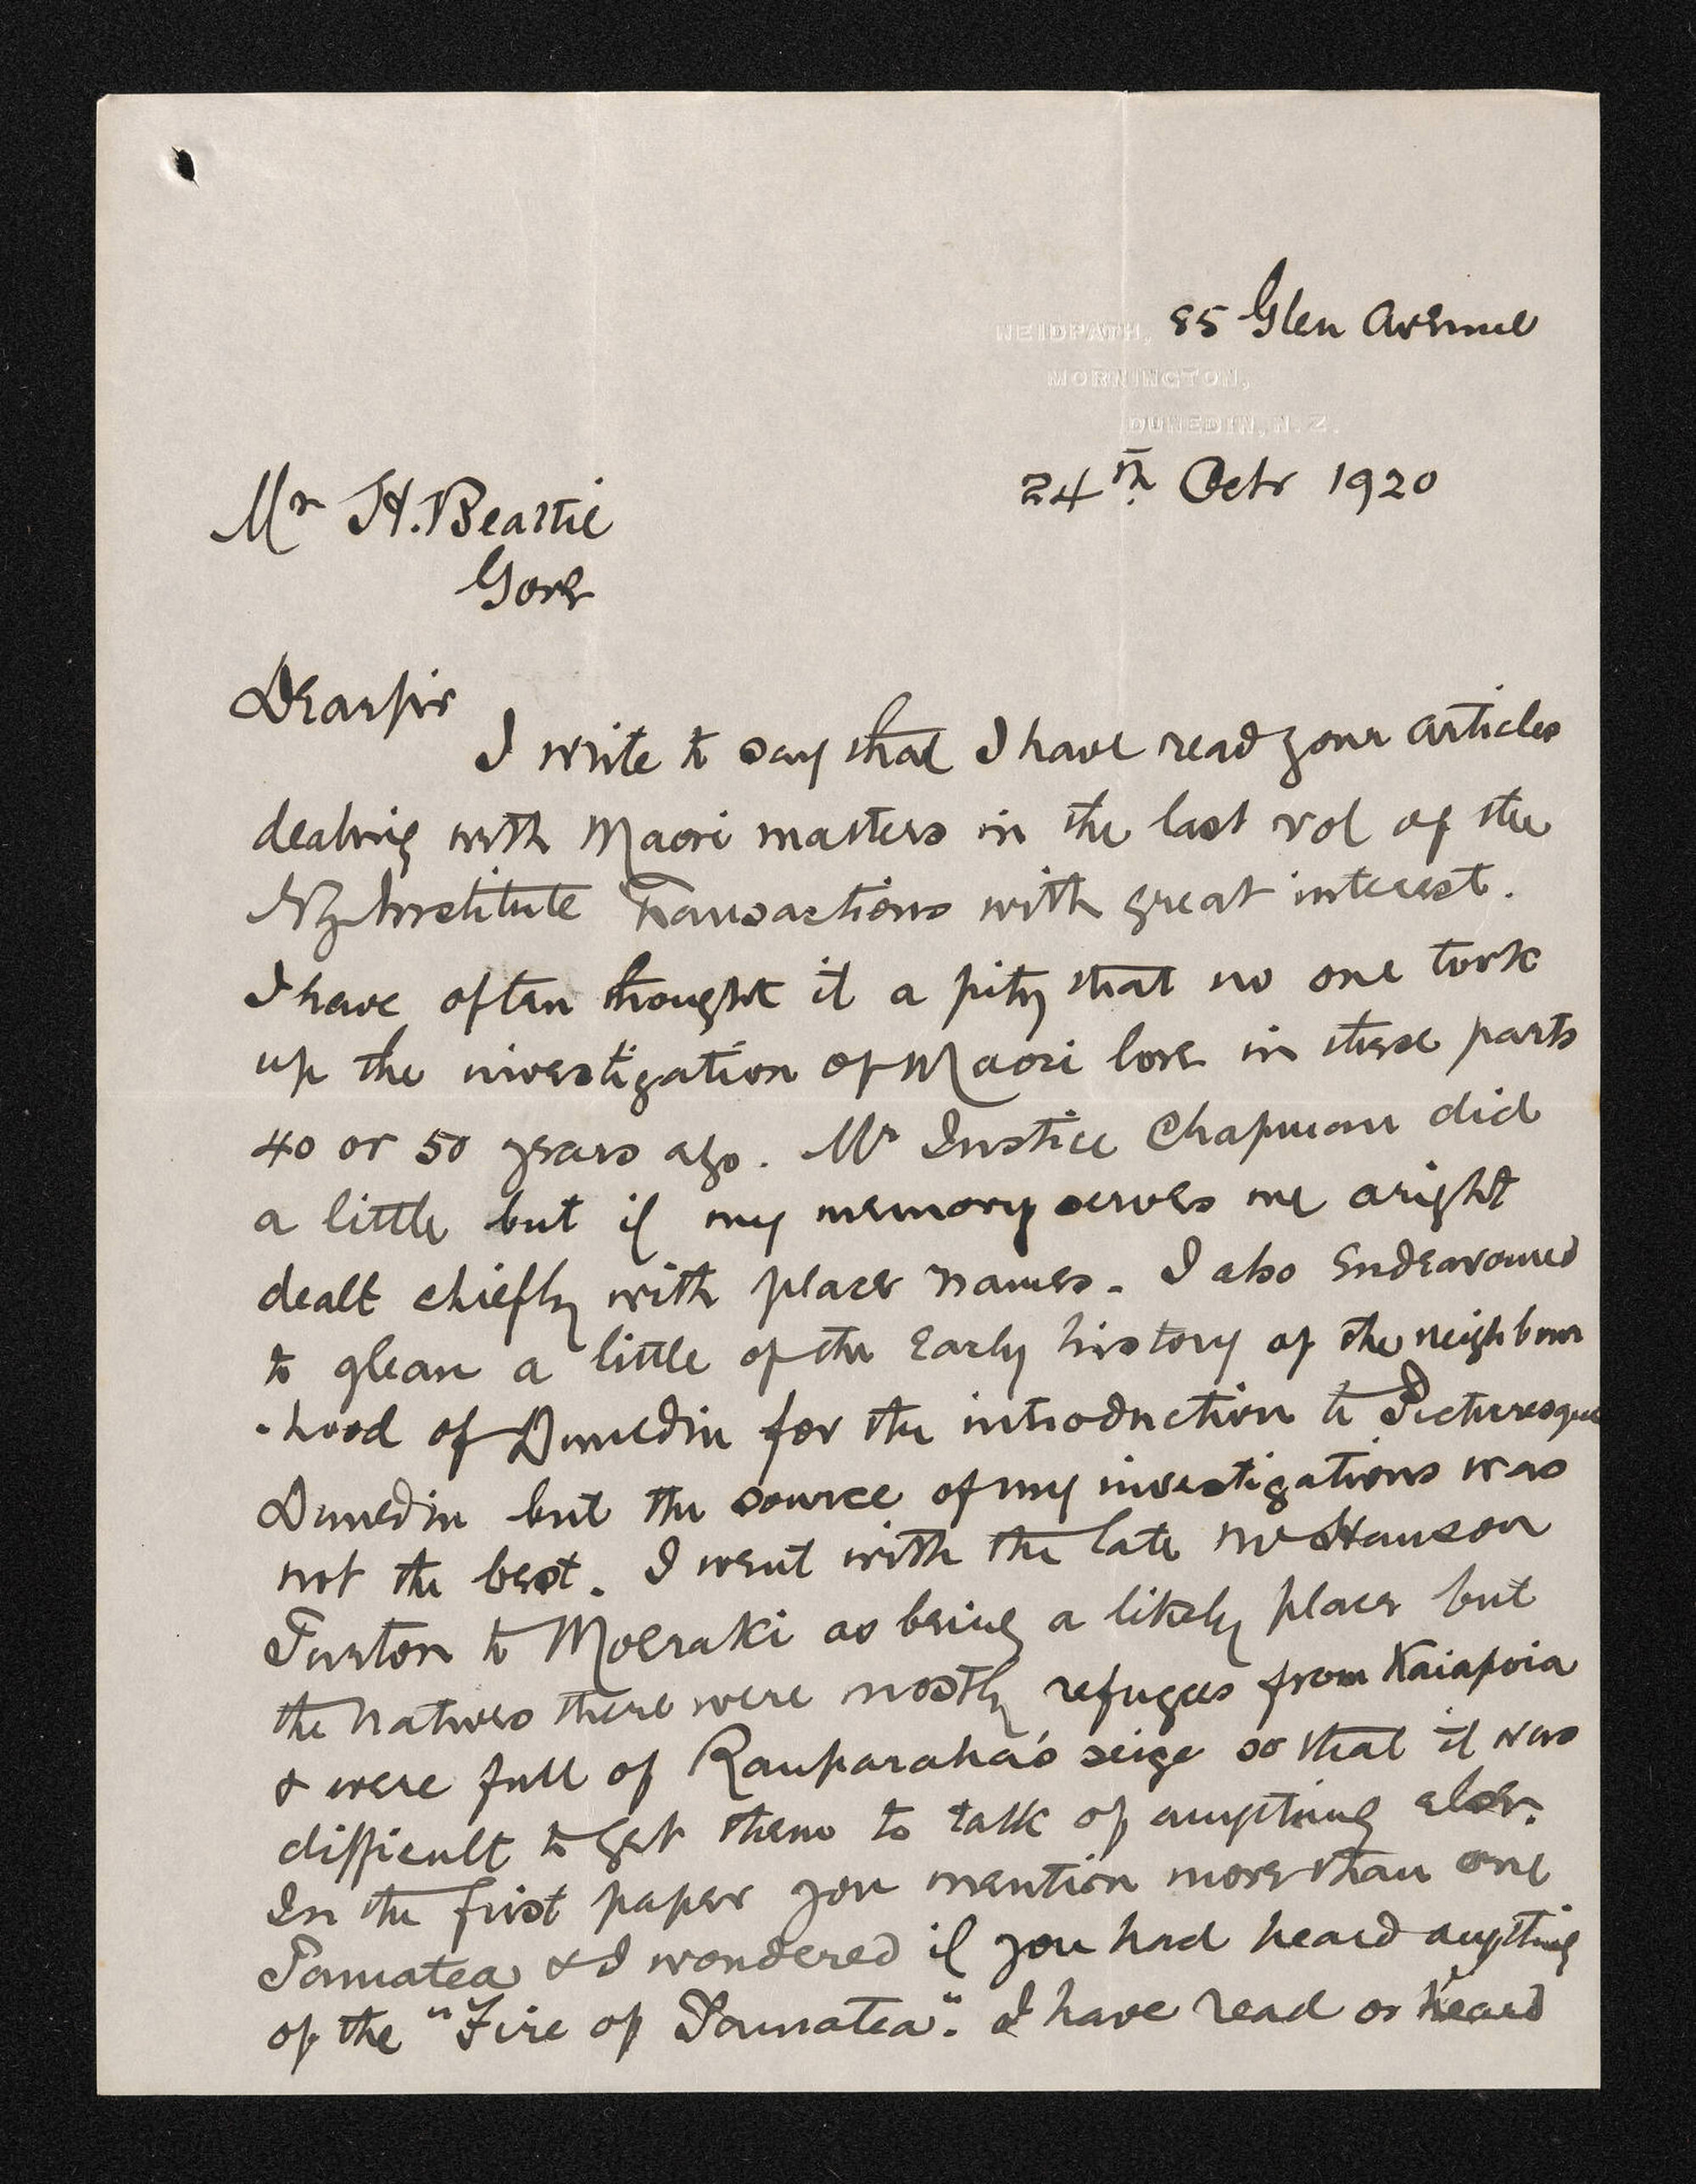 NEIDPATH, 85 Glen Avenue
MORNINGTON,
DUNEDIN, N.Z.
24th Octr 1920
Mr H. Beattie
Gore
Dear Sir
I write to say that I have read your articles
dealing with Maori matters in the last vol of the
NZ Institute Transactions with great interest.
I have often thought it a pity that no one took
up the investigation of Maori lore in these parts
40 or 50 years ago. Mr Justice Chapman did
a little but if my memory serves me aright
dealt chiefly with place names. I also endeavoured
to glean a little of the early history of the neighbour
-hood of Dunedin for the introduction to Picturesque
Dunedin but the source of my investigations was
not the best. I went with the late Mr Hanson
Turton to Moeraki as being a likely place but
the natives there were mostly refugees from Kaiapoia
& were full of Rauparaha's seige so that it was
difficult to get them to talk of anything else.
In the first paper you mention more than one
Tamatea & I wondered if you had heard anything
of the "Fire of Tamatea". I have read or heard